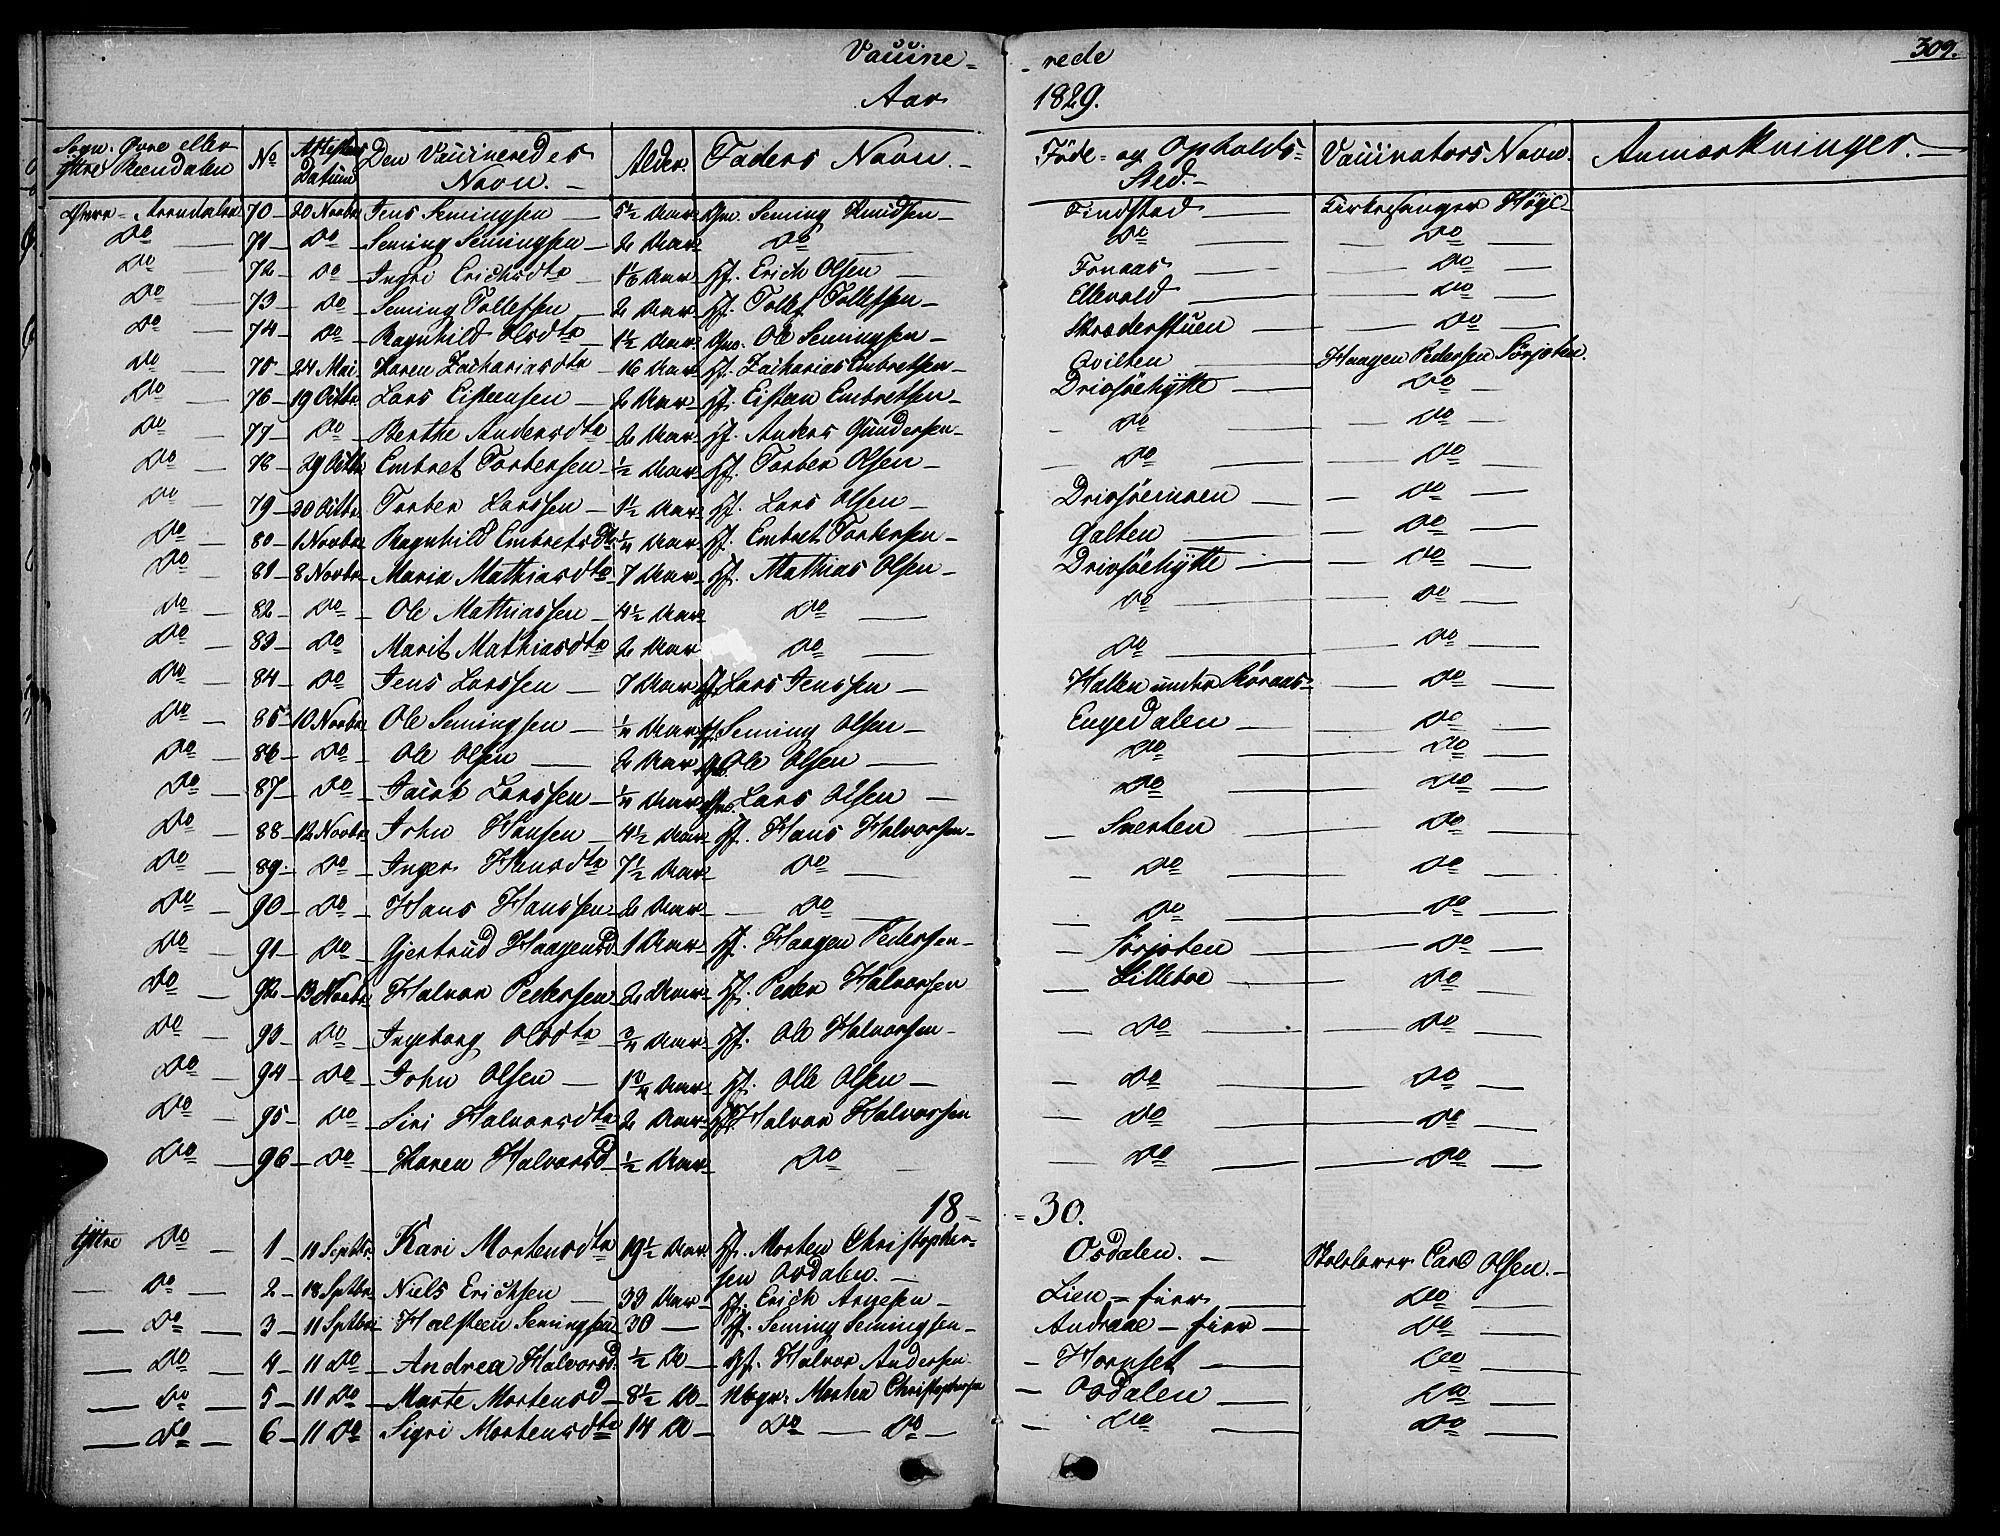 Vaccine- -rede 309.
Aar 1829.
Sogn. Øvre eller Ytre Reendalen No Attestens Datum Den Vaccineredes Navn. Alder. Faders Navn. Føde- og Opholds-Sted. Vaccinators Navn. Anmærkninger.
Øvre- 70 20 Novbr Jens Semingsen 5½ Aar Gm. Seming Knudsen Findstad Kirkesanger Høye
Do 71 Do Seming Semingsen 2 Aar Do Do Do
Do 72 Do Ingri Erichsdtr Aar Hf. Erich Olsen Fonaas Do
Do 73 Do Seming Tollefsen 2 Aar Hf. Tollef Tollefsen Ellevold Do
Do 74 Do Ragnhild Olsdtr 1½ Aar Gm. Ole Semingsen Skrædderstuen Do
Do 75 24 Mai Karen Zachariasdtr 16 Aar Hf. Zacharias Embretsen Qvilten Haagen Pedersen Sørjoten.
Do 76 19 Octbr Lars Eisteensen 2 Aar Hf. Eisteen Embretsen Drivsøehytte Do
Do 77 Do Berthe Andersdtr 2 Aar Hf. Anders Gundersen Do Do
Do 78 29 Octbr Embret Torbersen ½ Aar Hf. Torber Olsen Do Do
Do 79 20 Octbr Torber Larssen 1½ Aar Hf. Lars Olsen Drivsøemoen Do
Do 80 1 Novbr Ragnhild Embretsdtr ¼ Aar Hf. Embret Torbersen Galten Do
Do 81 8 Novbr Maria Mathiasdtr 7 Aar Hf. Mathias Olsen Drivsøehytte Do
Do 82 Do Ole Mathiassen 4½ Aar Do Do Do
Do 83 Do Marit Mathiasdtr 2 Aar Do Do Do
Do 84 Do Jens Larssen 7 Aar Hf. Lars Jenssen Hallen under Røraas Do
Do 85 10 Novbr Ole Semingsen ¼ Aar Hf. Seming Olsen Engedalen Do
Do 86 Do Ole Olsen 2 Aar Ole Olsen Do Do
Do 87 Do Jacob Larssen ¼ Aar Gm. Lars Olsen Do Do
Do 88 12 Novbr John Hansen 4½ Aar Hf. Hans Halvorsen Snerten Do
Do 89 Do Inger Hansdtr 7½ Aar Do Do Do
Do 90 Do Hans Hanssen 2 Aar Do Do Do
Do 91 Do Gjertrud Haagensd 1 Aar Hf. Haagen Pedersen Sørjoten Do
Do 92 13 Novbr Halvor Pedersen 2 Aar Hf. Peder Halvorsen Lilleboe Do
Do 93 Do Ingeborg Olsdtr ¾ Aar Hf. Ole Halvorsen Do Do
Do 94 Do John Olsen 1¾ Aar Hf. Olle Olsen Do Do
Do 95 Do Siri Halvorsdtr 2 Aar Hf. Halvor Halvorsen Do Do
Do 96 Do Karen Halvorsd ½ Aar Do Do Do
18- -30.
Ytre Do 1 11 Septbr Kari Mortensdtr 19½ Aar Hf. Morten Christopher- Osdalen. Skolelærer Carl Olsen.
sen Osdalen.
Do 2 18 Septbr Niels Erichsen 33 Aar Hf. Erich Arnesen Lien- Do
Do 3 11 Sptbr Halsteen Semingsen 30 Hf. Seming Semingsen Andraae- Do
Do 4 11 Do Andrea Halvorsd. ½ Do Gf. Halvor Andersen Hornset Do
Do 5 11 Do Marte Mortensd 8½ Do Morten Christophersen Osdalen Do
Do 6 11 Do Sigri Mortensdtr 14 Do Do Do Do Do